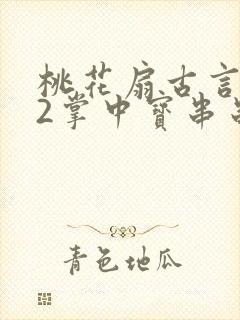 桃花扇古言
2掌中寶串
青色地瓜